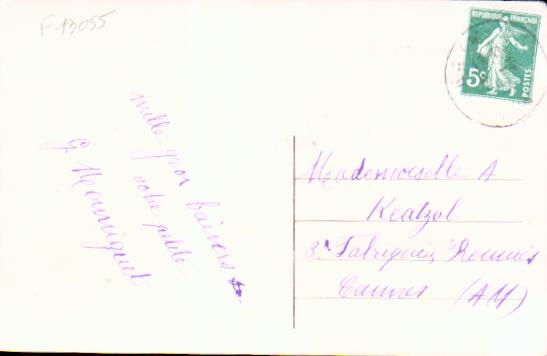 F-13055
RÉPUBLIQUE FRANÇAISE
5c
POSTES
mille gros baisers
votre petite
G Hennriquet
Mademoiselle A
Keatzel
3
Cannes (AM)